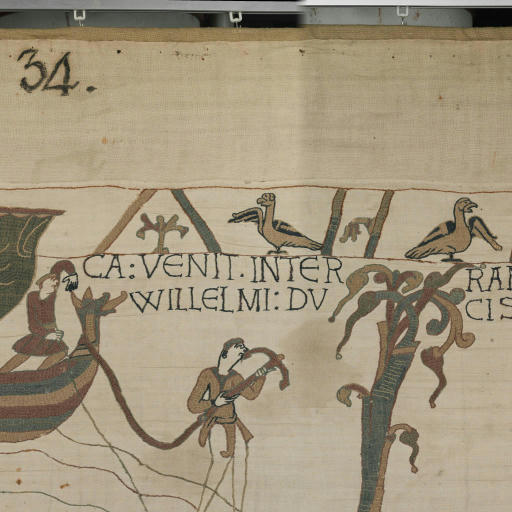 34.
CA: VENIT. INTER
WILLELMI: DV
RAN
CIS